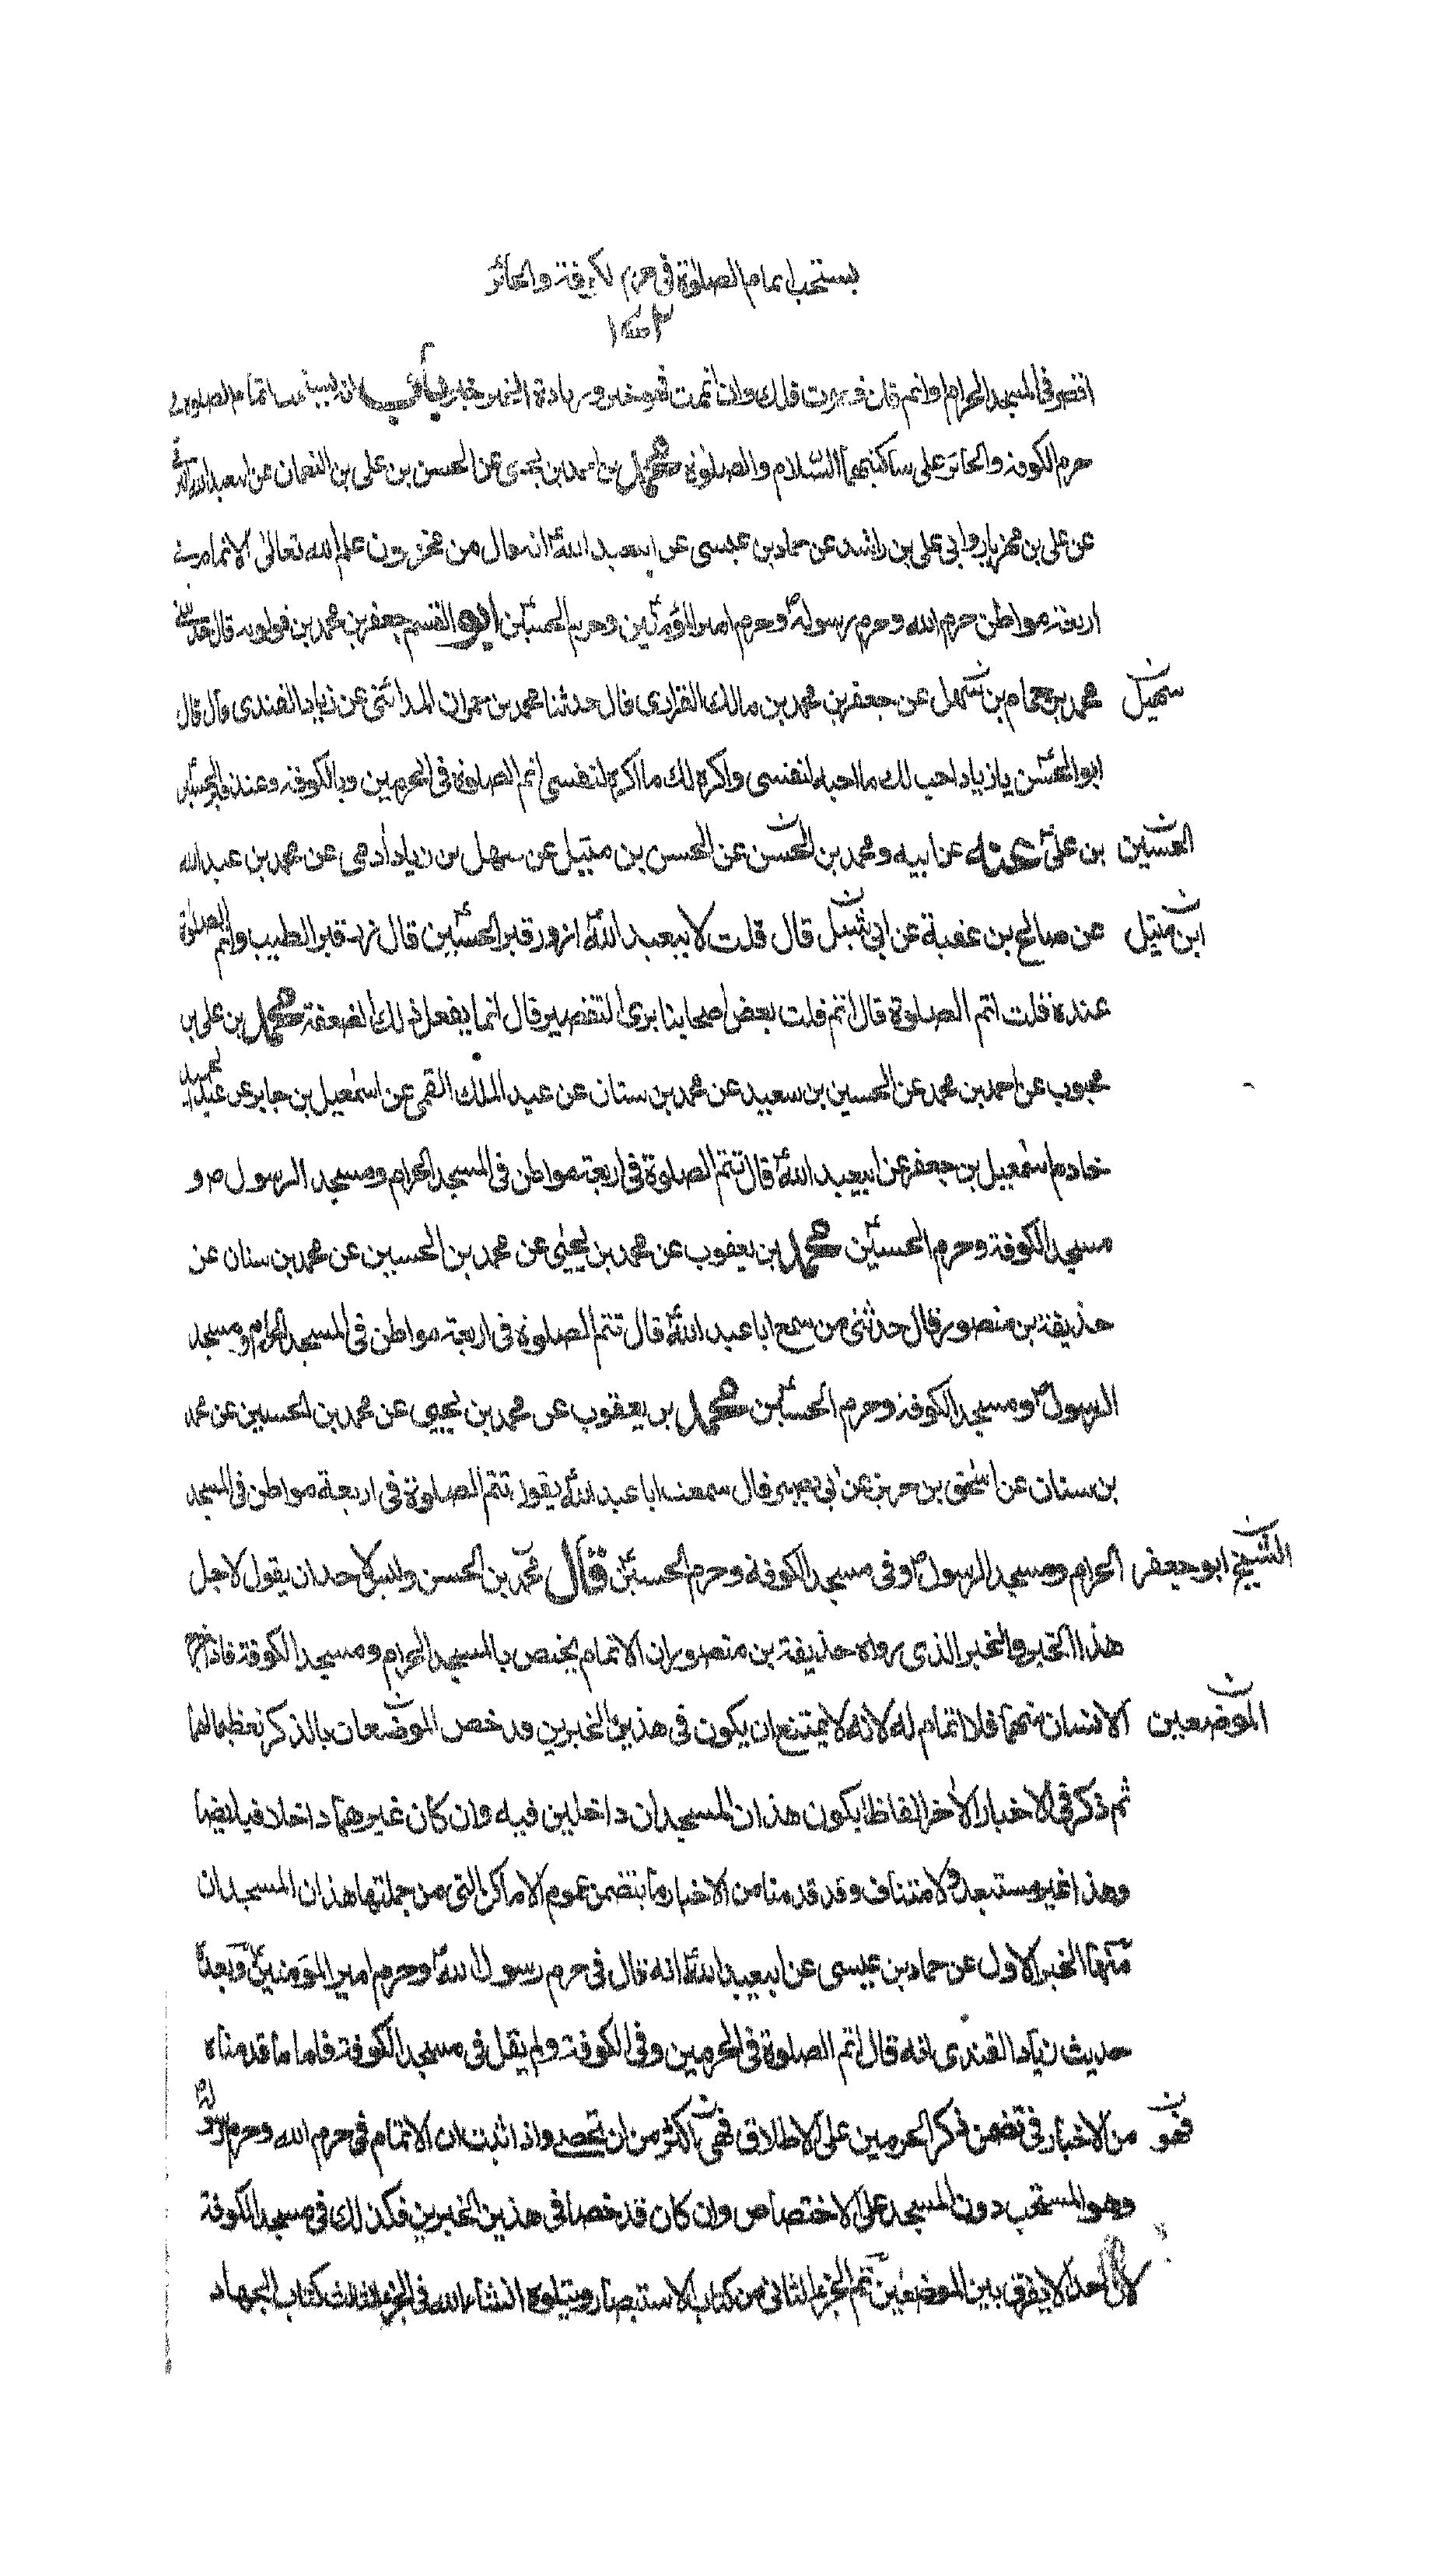 يستحب اتمام الصلوة في حرم الكوفة والحائر
اقصر في المسجد الحرام او اتم قال ان قصرت فلك وان اتممت فهو خير وزيادة الخير خير باب انه يستحب اتمام الصلوة في
حرم الكوفة والحائر على ساكنيهما السلام والصلوة محمد بن احمد بن يحيى عن الحسن بن علي بن النعمان عن ابيعبدالله البرقي
عن علي بن مهزيار وابي علي بن راشد عن حماد بن عيسى عن ابيعبد الله ع انه قال من مخزون علم الله تعالى الاتمام في
اربعة مواطن حرم الله وحرم رسوله ص وحرم امير المؤمنين وحرم الحسين ابو القسم جعفر بن محمد بن قولويه قال حدثني
محمد بن همام بن سهل عن جعفر بن محمد بن مالك الفزاري قال حدثنا محمد بن حمدان المدائني عن زياد القندي قال قال
سهيل
ابو الحسن يا زياد احب لك ما احبه لنفسي واكره لك ما اكره لنفسي اتم الصلوة في الحرمين وبالكوفة وعند قبر الحسين
الحسين بن علي عنه عن ابيه ومحمد بن الحسن عن الحسن بن متيل عن سهل بن زياد ادمي عن محمد بن عبد الله
ابن متيل عن صالح بن عقبة عن ابي شبل قال قلت لابيعبد الله ع ازور قبر الحسين قال زر قبر الطيب واتم الصلوة
عنده قلت اتم الصلوة قال اتم قلت بعض اصحابنا يرى التقصير قال انما يفعل ذلك الضعفة محمد بن علي بن
محبوب عن احمد بن محمد عن الحسين بن سعيد عن محمد بن سنان عن عبد الملك القمي عن اسمعيل بن جابر عن عبد الحميد
خادم اسمعيل بن جعفر عن ابيعبد الله ع قال تتم الصلوة في اربعة مواطن في المسجد الحرام ومسجد الرسول ص و
مسجد الكوفة وحرم الحسين محمد بن يعقوب عن محمد بن يحيى عن محمد بن الحسين عن محمد بن سنان عن
حذيفة بن منصور قال حدثني من سمع ابا عبد الله ع قال تتم الصلوة في اربعة مواطن في المسجد الحرام ومسجد
الرسول ص ومسجد الكوفة وحرم الحسين محمد بن يعقوب عن محمد بن يحيى عن محمد بن الحسين عن محمد
بن سنان عن اسحق بن حريز عن ابي بصير قال سمعت ابا عبد الله ع يقول تتم الصلوة في اربعة مواطن في المسجد
الشيخ ابو جعفر الحرام ومسجد الرسول ص وفي مسجد الكوفة وحرم الحسين قال محمد بن الحسن وليس لاحد ان يقول لاجل
هذا الخبر والخبر الذي رواه حذيفة بن منصور ان الاتمام يختص بالمسجد الحرام ومسجد الكوفة فاذا خرج
الموضعين الانسان منهما فلا اتمام له لانه لا يمتنع ان يكون في هذين الخبرين قد خص الموضعان بالذكر تعظيما لهما
ثم ذكر في الاخبار الاخر الفاظا يكون هذان المسجدان داخلين فيه وان كان غيرهما داخلا فيه ايضا
وهذا غير مستبعد ولا متناف وقد قدمنا من الاخبار ما يتضمن عموم الاماكن التي من جملتها هذان المسجدان
منها الخبر الاول عن حماد بن عيسى عن ابيعبد الله ع انه قال في حرم رسول الله ص وحرم امير المؤمنين وبعده
حديث زياد القندي انه قال اتم الصلوة في الحرمين وفي الكوفة ولم يقل في مسجد الكوفة فاما ما قدمناه
فهو من الاخبار في تضمن ذكر الحرمين على الاطلاق فهي اكثر من ان تحصى واذا ثبت ان الاتمام في حرم الله وحرم رسوله
وهو المستحب دون المسجد على الاختصاص وان كان قد خصا في هذين الخبرين فكذلك في مسجد الكوفة
لان احدا لا يفرق بين الموضعين تم الجزء الثاني من كتاب الاستبصار ويتلوه انشاء الله في الجزء الثالث كتاب الجهاد